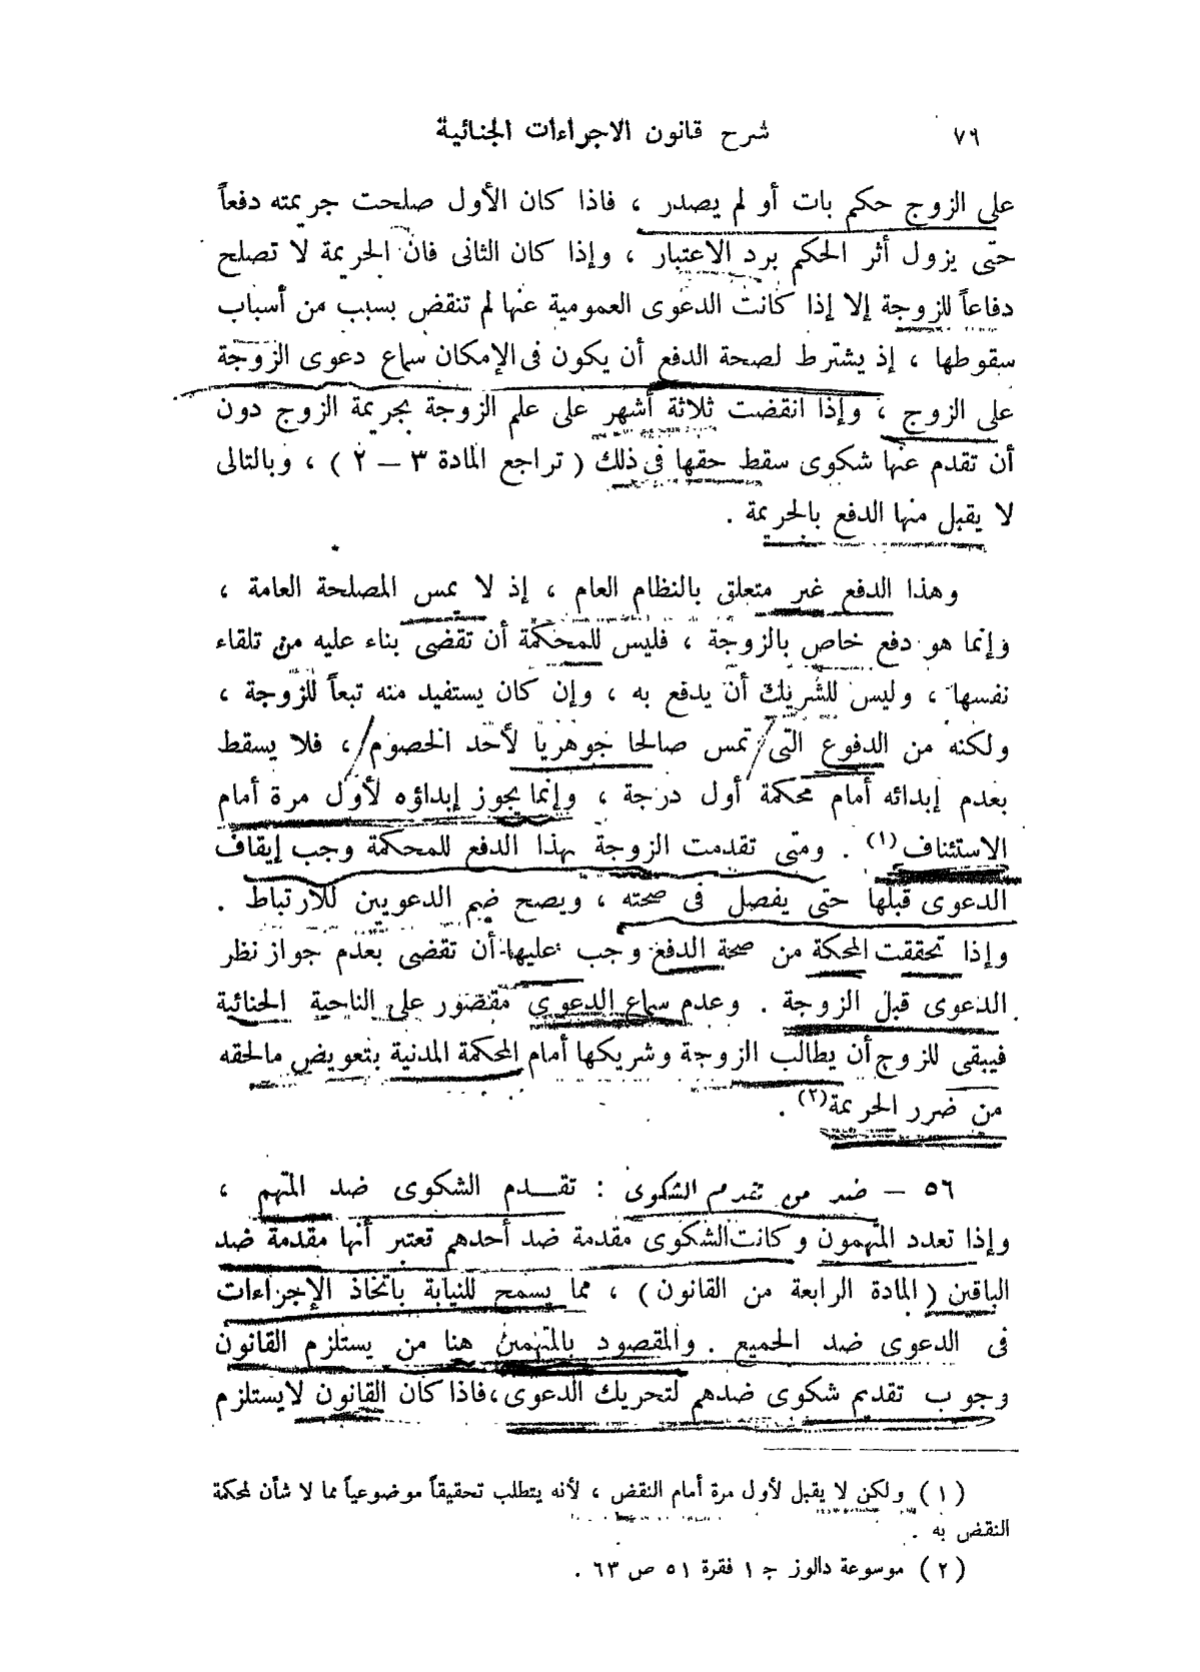 ٧٦
شرح قانون الاجراءات الجنائية
على الزوج حكم بات أو لم يصدر ، فاذا كان الأول صلحت جريمته دفعاً
حتى يزول أثر الحكم برد الاعتبار ، وإذا كان الثانى فان الجريمة لا تصلح
دفاعاً للزوجة إلا إذا كانت الدعوى العمومية عنها لم تنقض بسبب من أسباب
سقوطها ، إذ يشترط لصحة الدفع أن يكون فى الإمكان سماع دعوى الزوجة
على الزوج ، وإذا انقضت ثلاثة أشهر على علم الزوجة بجريمة الزوج دون
أن تقدم عنها شكوى سقط حقها فى ذلك ( تراجع المادة ٣ – ٢ ) ، وبالتالى
لا يقبل منها الدفع بالجريمة .
وهذا الدفع غير متعلق بالنظام العام ، إذ لا يمس المصلحة العامة ،
وإنما هو دفع خاص بالزوجة ، فليس للمحكمة أن تقضى بناء عليه من تلقاء
نفسها ، وليس للشريك أن يدفع به ، وإن كان يستفيد منه تبعاً للزوجة ،
ولكنه من الدفوع التى تمس صالحا جوهريا لأحد الخصوم ، فلا يسقط
بعدم إبدائه أمام محكمة أول درجة ، وإنما يجوز إبداؤه لأول مرة أمام
الاستئناف (١) . ومتى تقدمت الزوجة بهذا الدفع للمحكمة وجب إيقاف
الدعوى قبلها حتى يفصل فى صحته ، ويصح ضم الدعويين للارتباط .
وإذا تحققت المحكمة من صحة الدفع وجب عليها أن تقضى بعدم جواز نظر
الدعوى قبل الزوجة . وعدم سماع الدعوى مقصور على الناحية الجنائية
فيبقى للزوج أن يطالب الزوجة وشريكها أمام المحكمة المدنية بتعويض مالحقه
من ضرر الجريمة (٢) .
٥٦ – ضد من تقدم الشكوى : تقـدم الشكوى ضد المتهم ،
وإذا تعدد المتهمون وكانت الشكوى مقدمة ضد أحدهم تعتبر أنها مقدمة ضد
الباقين ( المادة الرابعة من القانون ) ، مما يسمح للنيابة باتخاذ الإجراءات
فى الدعوى ضد الجميع . والمقصود بالمتهمين هنا من يستلزم القانون
وجوب تقديم شكوى ضدهم لتحريك الدعوى ، فاذا كان القانون لا يستلزم
(١) ولكن لا يقبل لأول مرة أمام النقض ، لأنه يتطلب تحقيقاً موضوعياً مما لا شأن لمحكمة
النقض به .
(٢) موسوعة دالوز ج ١ فقرة ٥١ ص ٦٣ .